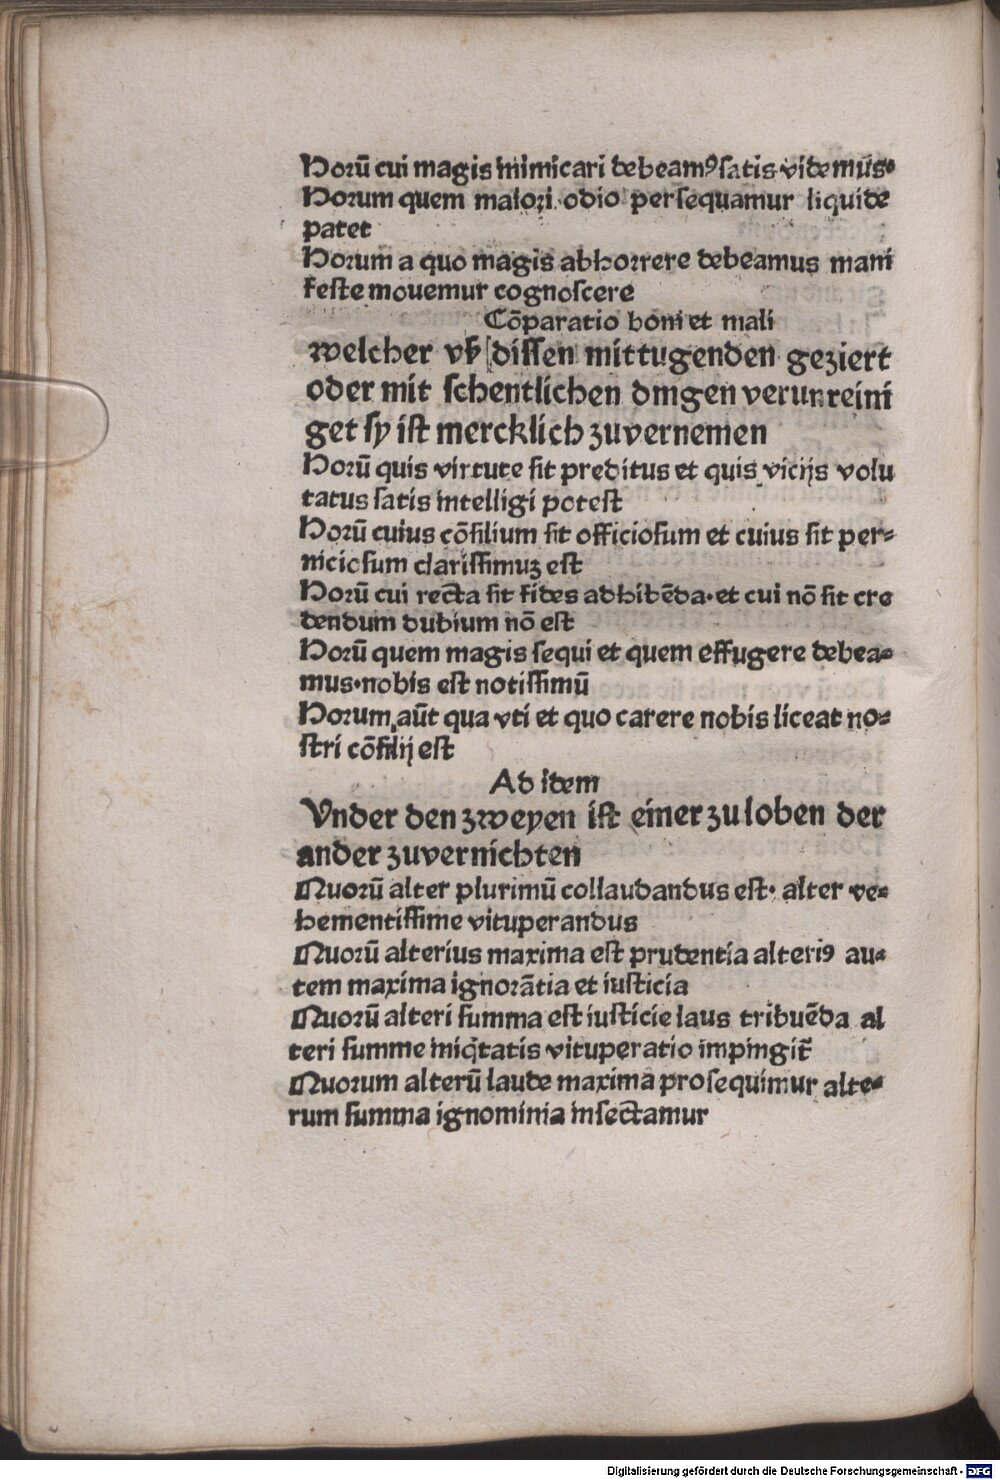 Horū cui magis inimicari debeamꝰ satis videmus·
Horum quem maiori odio persequamur liquide
patet
Horum a quo magis abhorrere debeamus mani
feste movemur cognoscere
Cōparatio boni et mali
welcher vß dissen mit tugenden geziert
oder mit schentlichen dingen verunreini
get sy ist mercklich zuvernemen
Horū quis virtute sit preditus et quis vicijs volu
tatus satis intelligi potest
Horū cuius cōsilium sit officiosum et cuius sit per⸗
niciosum clarissimuꝫ est
Horū cui recta sit fides adhibēda·et cui nō sit cre
dendum dubium nō est
Horū quem magis sequi et quem effugere debea⸗
mus·nobis est notissimū
Horum aūt qua vti et quo carere nobis liceat no⸗
stri cōsilij est
Ad idem
Vnder den zweyen ist einer zu loben der
ander zuvernichten
Quorū alter plurimū collaudandus est· alter ve⸗
hementissime vituperandus
Quorū alterius maxima est prudentia alteriꝰ au⸗
tem maxima ignorātia et iusticia
Quorū alteri summa est iusticie laus tribuēda al
teri summe iniq̄tatis vituperatio impingit̄
Quorum alterū laude maxima prosequimur alte⸗
rum summa ignominia insectamur
Digitalisierung gefördert durch die Deutsche Forschungsgemeinschaft - DFG